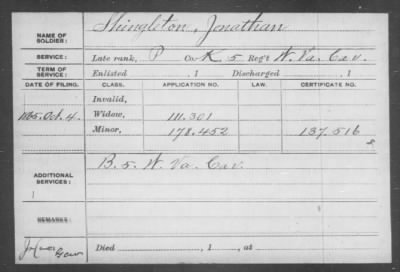 NAME OF SOLDIER: Shingleton, Jonathan
SERVICE: Late rank, P Co. K. 5 Reg't W. Va. Cav.
TERM OF SERVICE: Enlisted , 1 Discharged , 1
DATE OF FILING. CLASS. APPLICATION NO. LAW. CERTIFICATE NO.
Invalid,
1865. Oct. 4. Widow, 111.301
Minor, 178.452 137.516
ADDITIONAL SERVICES: B. 5. W. Va. Cav.
REMARKS:
Died , 1 , at